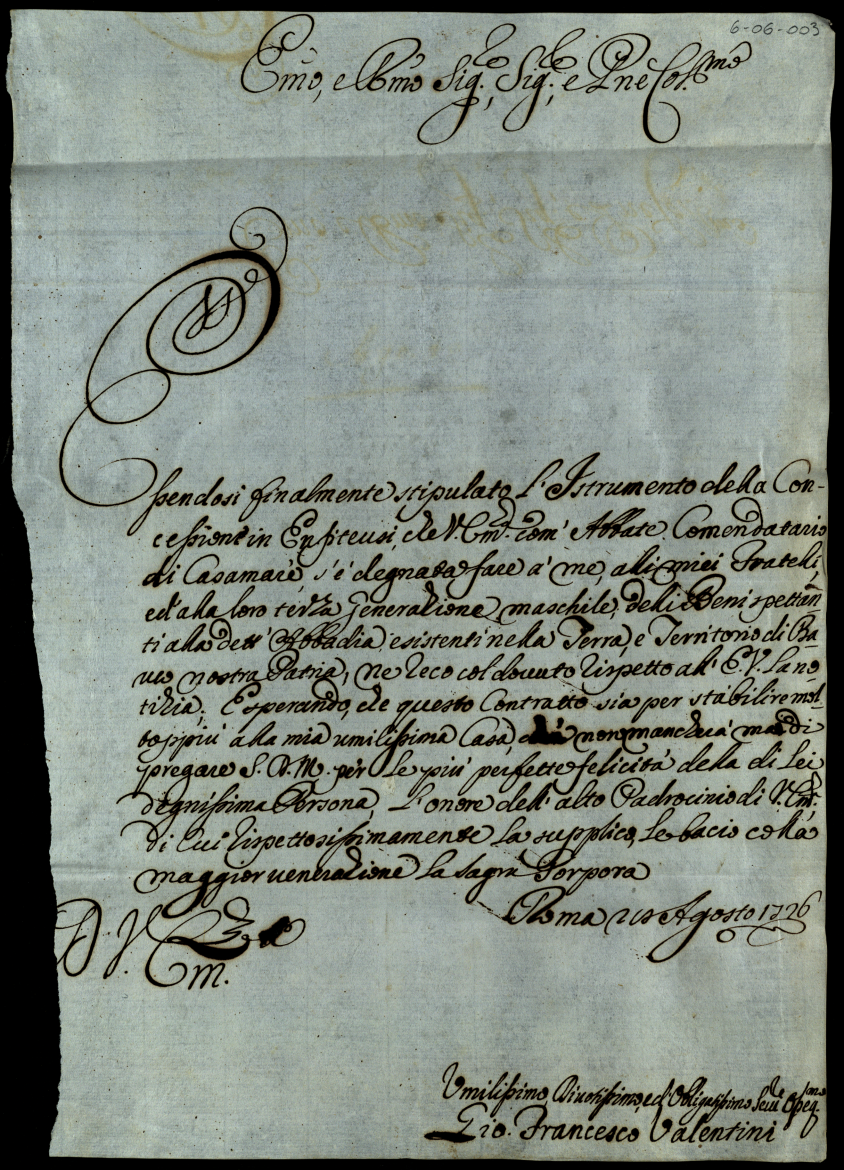 6-06-003
Emo, e Rmo Sig.e, Sig.e, e Pne Col.mo
Essendosi finalmente stipulato l'Istrumento della Con-
cessione in Enfiteusi, che V. Em.a com' Abbate Comendatario
di Casamare, s'è degnata fare a' me, alli miei Fratelli,
ed' alla loro terza generazione maschile, delli Beni spettan
ti alla dett' Abbadia, esistenti nella Terra, e Territorio di Ba
uco nostra Patria, ne reco col dovuto rispetto all' E. V. la no
tizia; Esperando, che questo Contratto sia per stabilire mol
to più alla mia umilissima Casa, non mancherà mai di
pregare S. D. M. per le più perfette felicità della di Lei
degnissima Persona, l'onore dell' alto Padrocinio di V. Em.a
di cui rispettosissimamente la supplico, le bacio colla
maggior venerazione la sagra Porpora
Roma Agosto 1726
D. V. Em.
Umilissimo, Divotissimo, ed' Obligatissimo Serv.e Osseq.mo
Gio. Francesco Valentini